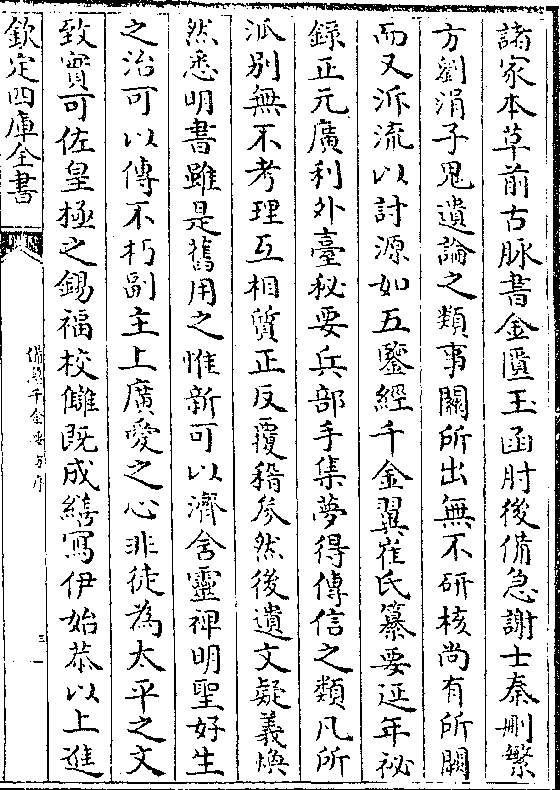 諸家本草前古脉書金匱玉函肘後備急謝士泰刪繁
方劉涓子鬼遺論之類事關所出無不研核尚有所闕
而又泝流以討源如五鑒經千金翼崔氏纂要延年秘
錄正元廣利外臺秘要兵部手集夢得傳信之類凡所
派別無不考理互相質正反覆稽參然後遺文疑義煥
然悉明書雖是舊用之惟新可以濟含靈裨明聖好生
之治可以傳不朽副主上廣愛之心非徒為太平之文
致實可佐皇極之錫福校讎既成繕寫伊始恭以上進
欽定四庫全書
備急千金要方序
三